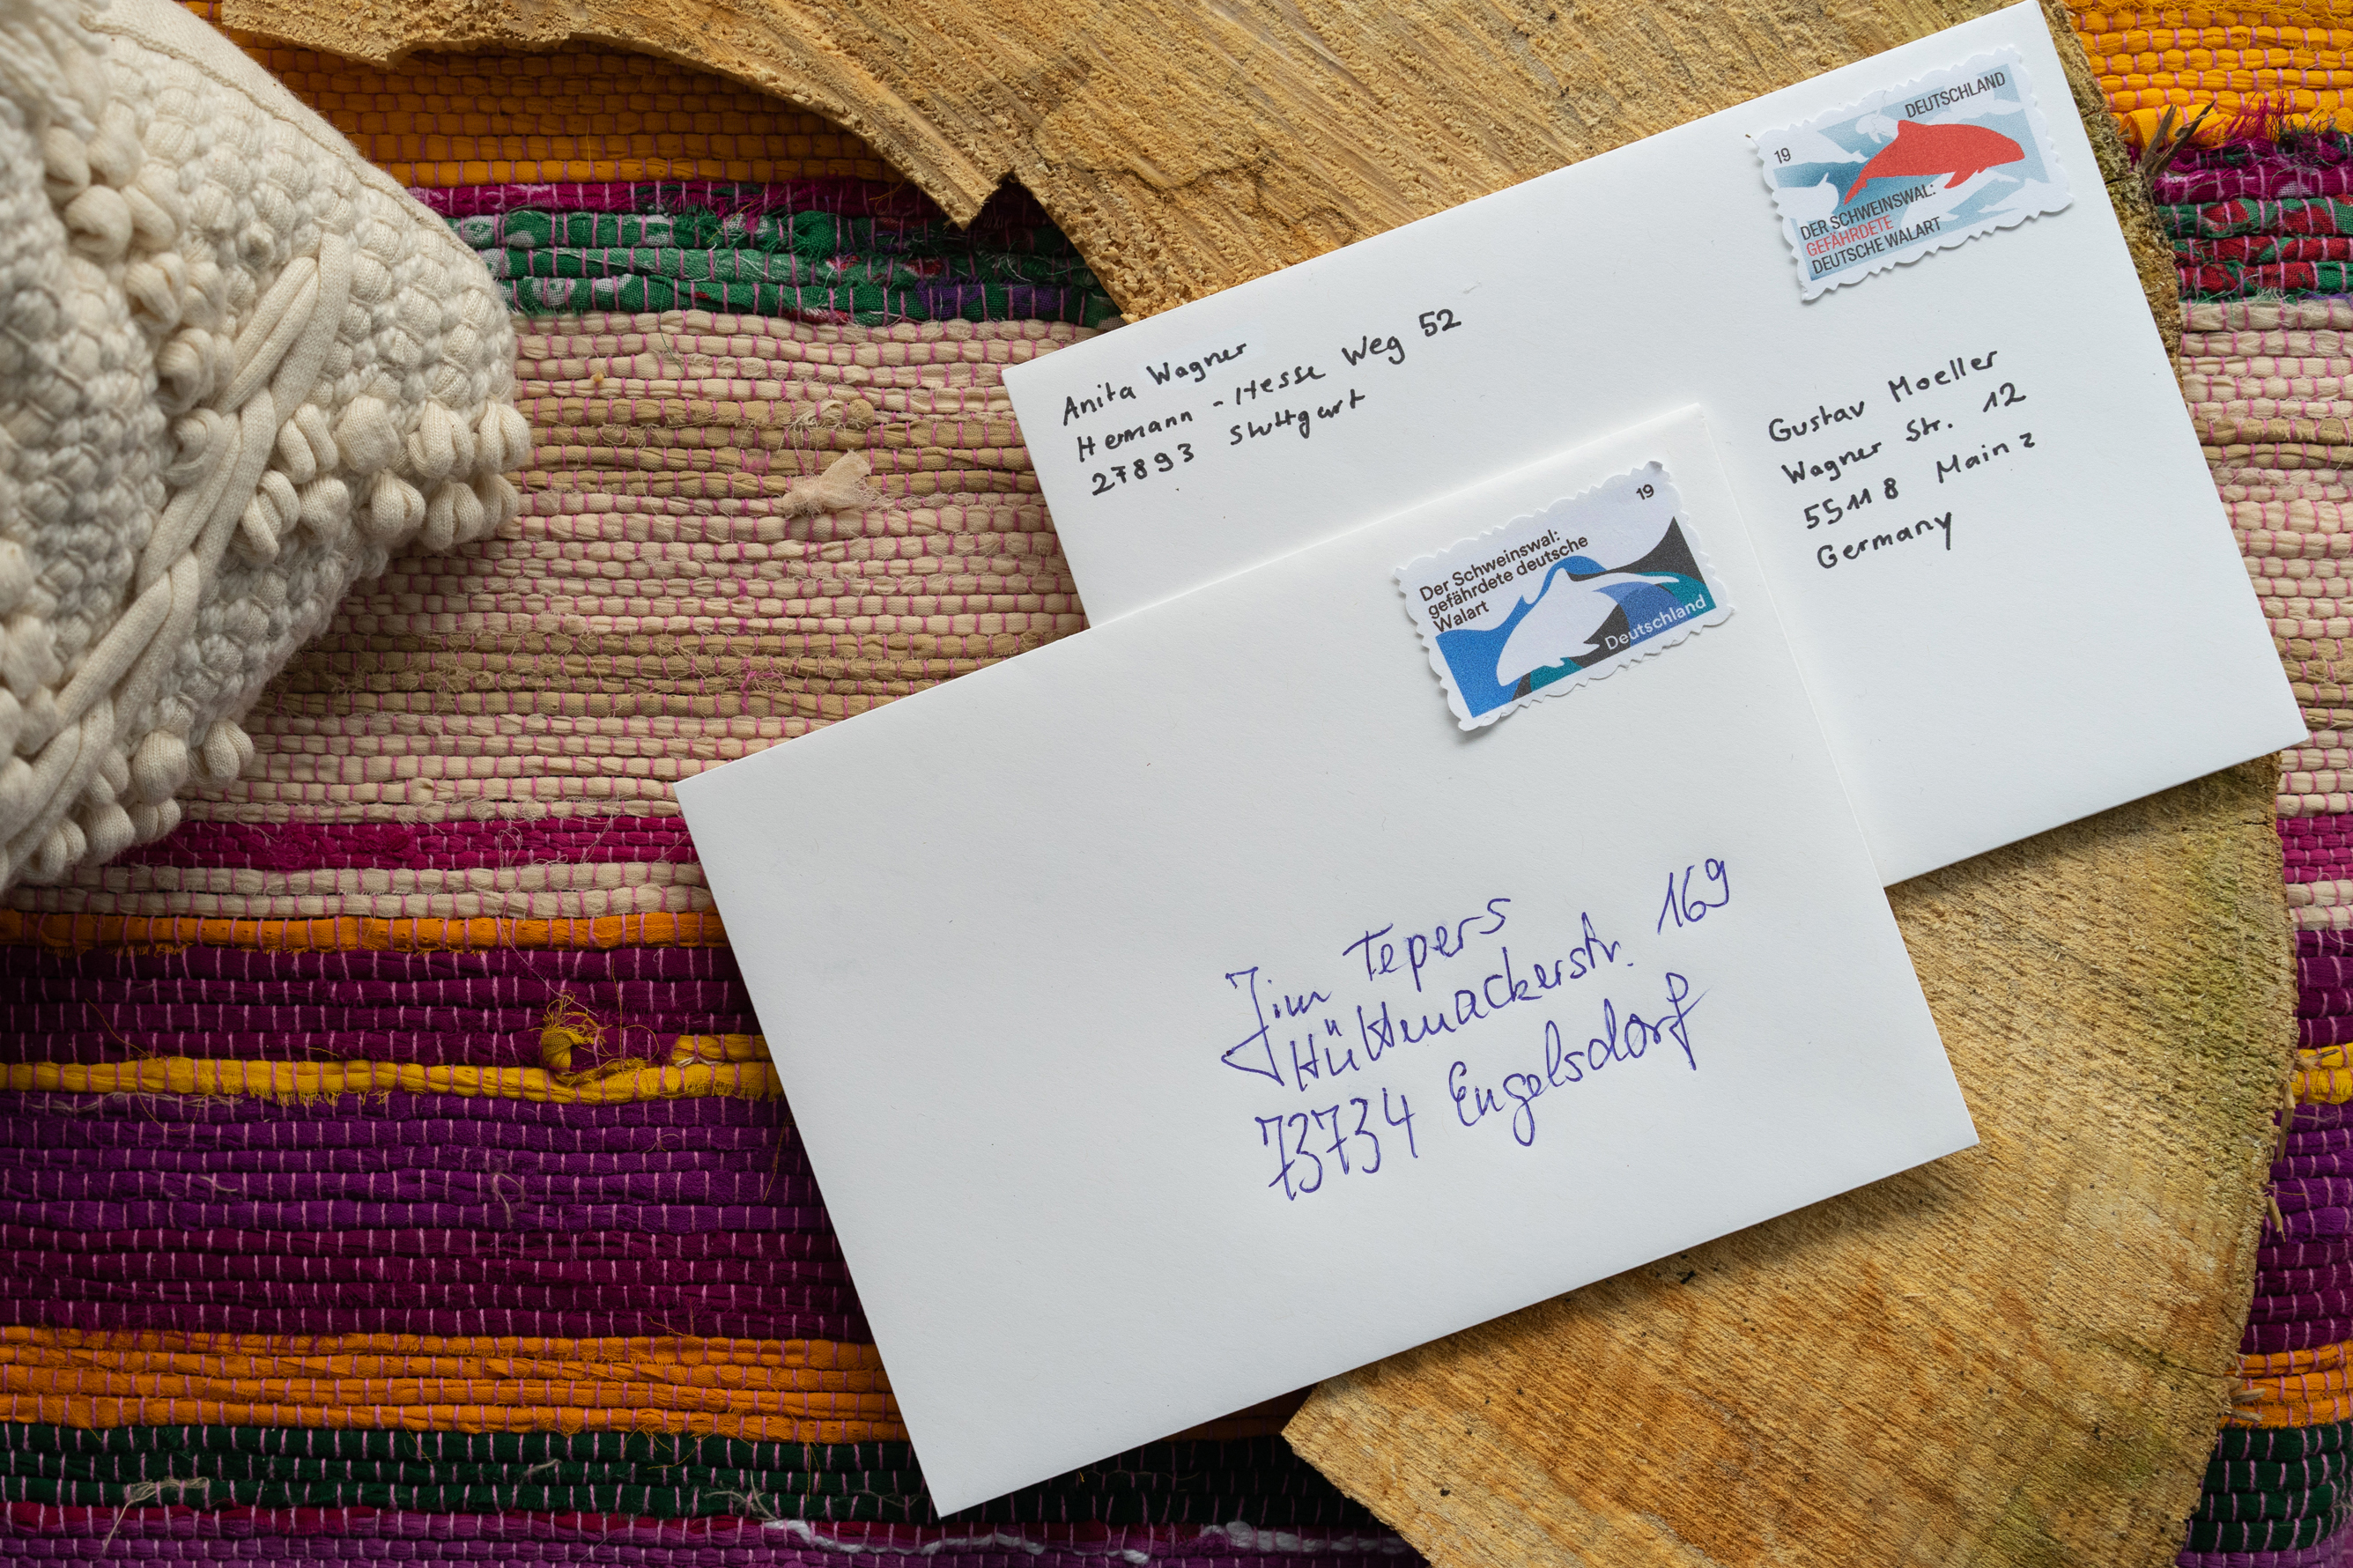 DEUTSCHLAND
19
DER SCHWEINSWAL:
GEFÄHRDETE
DEUTSCHE WALART
Anita Wagner
Hermann-Hesse Weg 52
27893 Stuttgart
Gustav Moeller
Wagner Str. 12
55118 Mainz
Germany
19
Der Schweinswal:
gefährdete deutsche
Walart
Deutschland
Jim Tepers
Hüttenackerstr. 169
73734 Engelsdorf